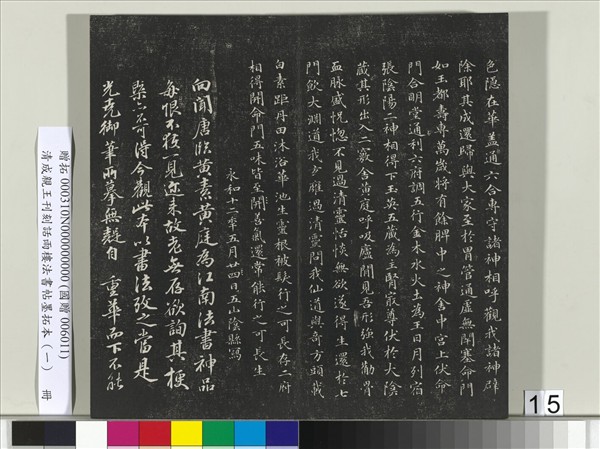 色隱在華蓋通六合專守諸神相呼觀我諸神辟
除耶其成還歸與大家至於胃管通虛無閉塞命門
如玉都壽專萬歲將有餘脾中之神舍中宮上伏命
門合明堂通利六府調五行金木水火土為王日月列宿
張陰陽二神相得下玉英五藏為主腎最尊伏於大陰
藏其形出入二竅舍黃庭呼吸廬間見吾形強我筋骨
血脉盛怳惚不見過清靈恬惔無欲遂得生還於七
門飲大淵道我 過清靈問我仙道與奇方頭載
白素距丹田沐浴華池生靈根被髮行之可長存二府
相得開命門五味皆至開善氣還常能行之可長生
永和十二年五月廿四日五山陰縣寫
向聞唐臨黃素黃庭為江南法書神品
每恨不後一見 故老無存欲詢其梗
槩亦不可得今觀此本以書法攷之當是
光堯御筆所摹無疑自 重華而下不能
贈拓 000310N000000000 (國贈 006011)
清成親王刊刻詒雨樓法書帖墨拓本(一) 冊
15